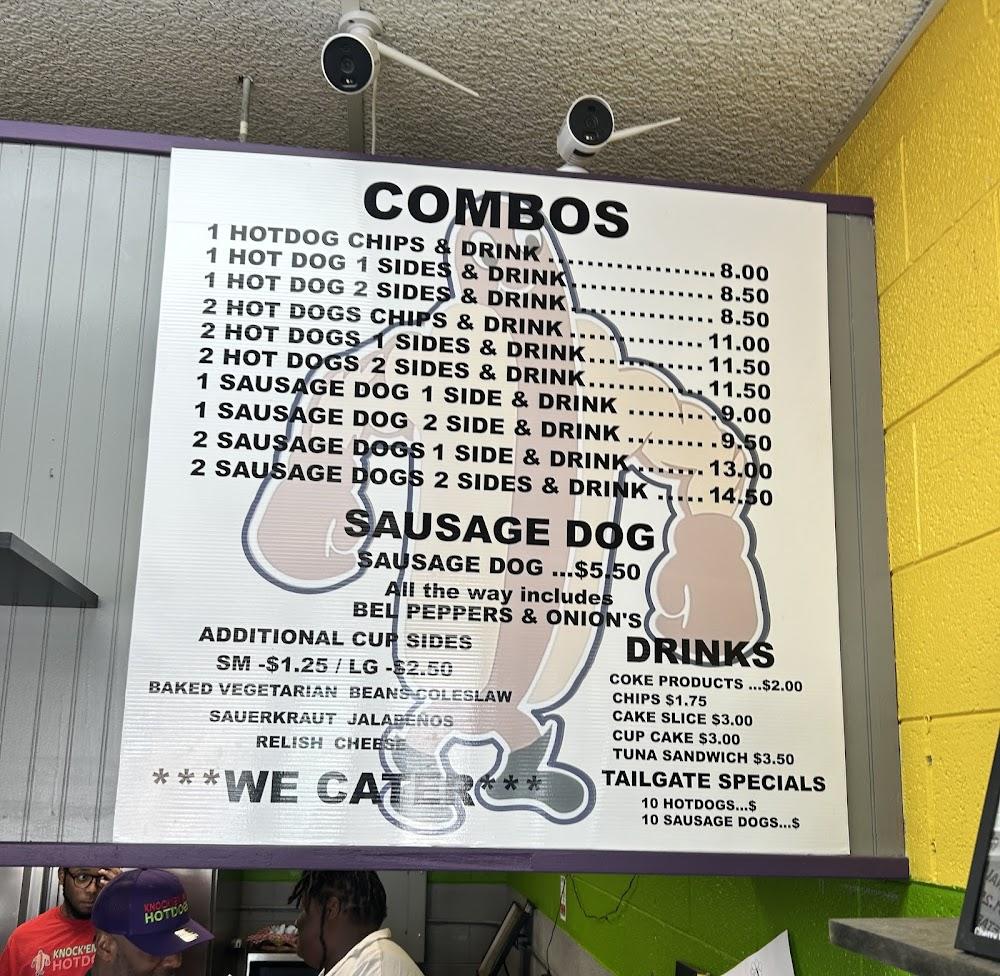 COMBOS
1 HOTDOG CHIPS & DRINK ..................... 8.00
1 HOT DOG 1 SIDES & DRINK ................... 8.50
1 HOT DOG 2 SIDES & DRINK ................... 8.50
2 HOT DOGS CHIPS & DRINK ................... 11.00
2 HOT DOGS 1 SIDES & DRINK ................. 11.50
2 HOT DOGS 2 SIDES & DRINK ................. 11.50
1 SAUSAGE DOG 1 SIDE & DRINK ......... 9.00
1 SAUSAGE DOG 2 SIDE & DRINK ......... 9.50
2 SAUSAGE DOGS 1 SIDE & DRINK ........ 13.00
2 SAUSAGE DOGS 2 SIDES & DRINK ..... 14.50
SAUSAGE DOG
SAUSAGE DOG ...$5.50
All the way includes
BEL PEPPERS & ONION'S
ADDITIONAL CUP SIDES
SM -$1.25 / LG -$2.50
BAKED VEGETARIAN BEANS COLESLAW
SAUERKRAUT JALAPEÑOS
RELISH CHEESE
***WE CATER***
DRINKS
COKE PRODUCTS ...$2.00
CHIPS $1.75
CAKE SLICE $3.00
CUP CAKE $3.00
TUNA SANDWICH $3.50
TAILGATE SPECIALS
10 HOTDOGS...$
10 SAUSAGE DOGS...$
KNOCK'EM
HOTDO
HOTDOG